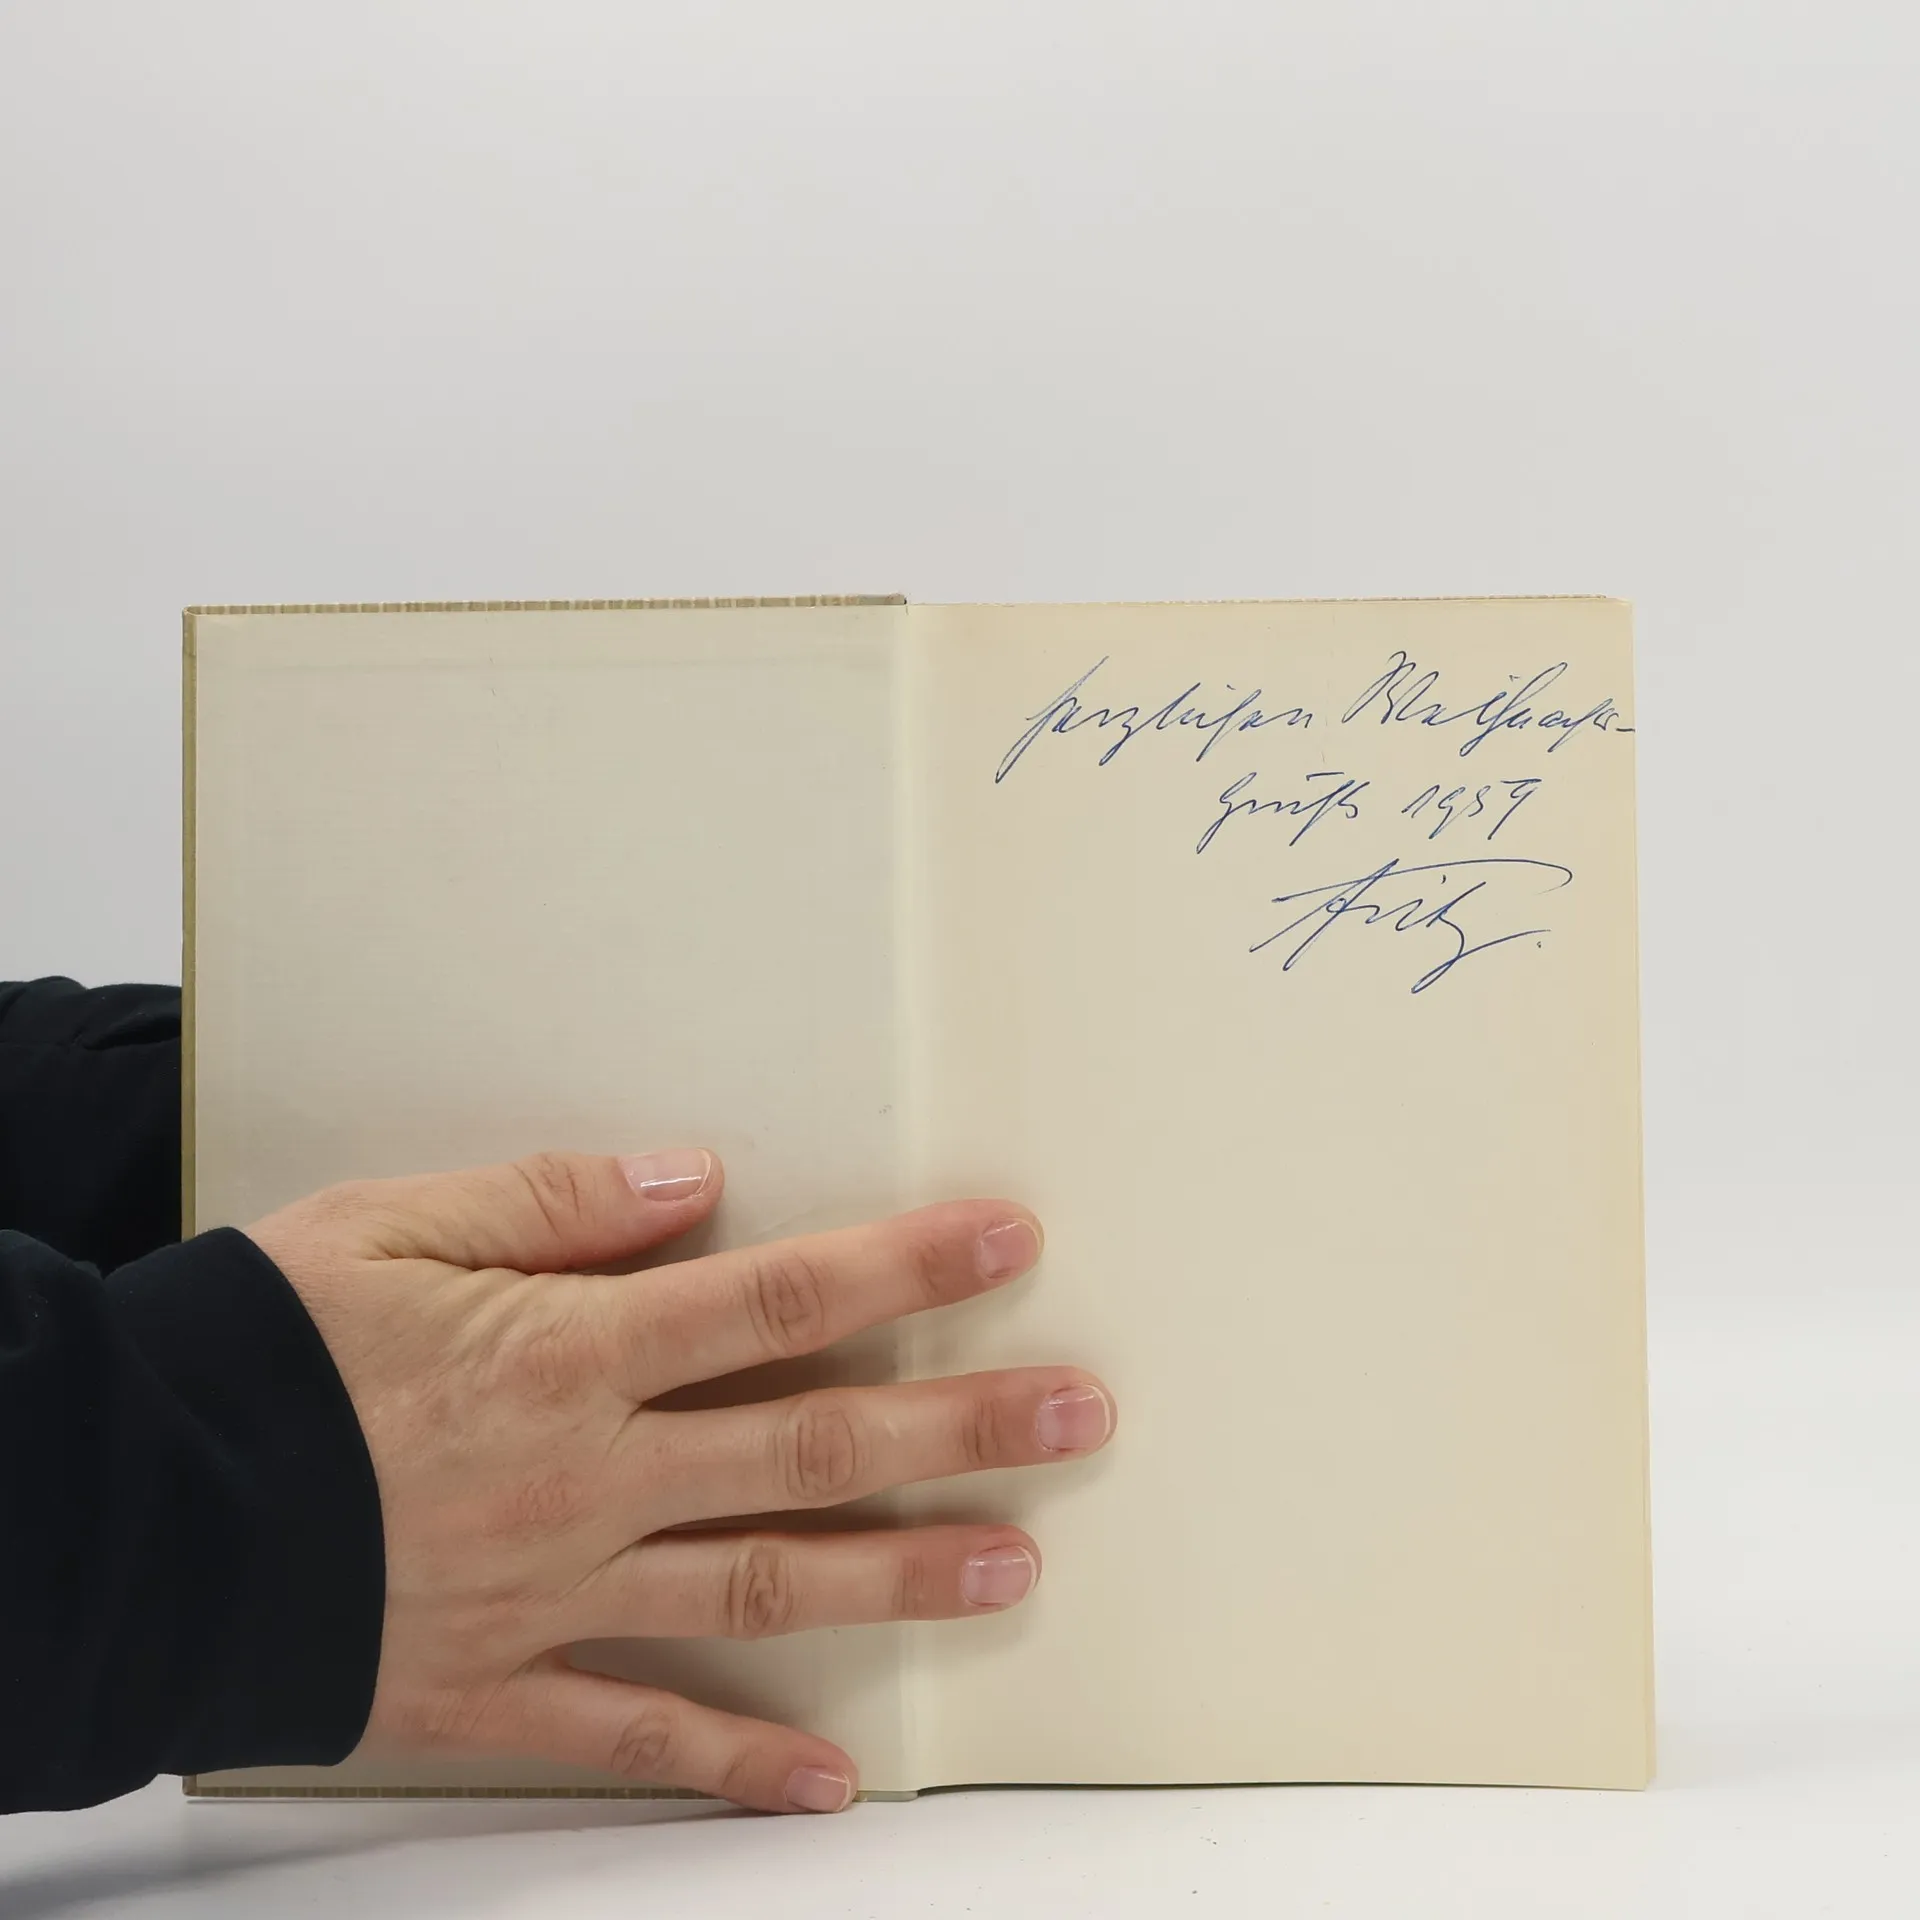 herzlichen Weihnachts-
gruß 1959
Fritz.